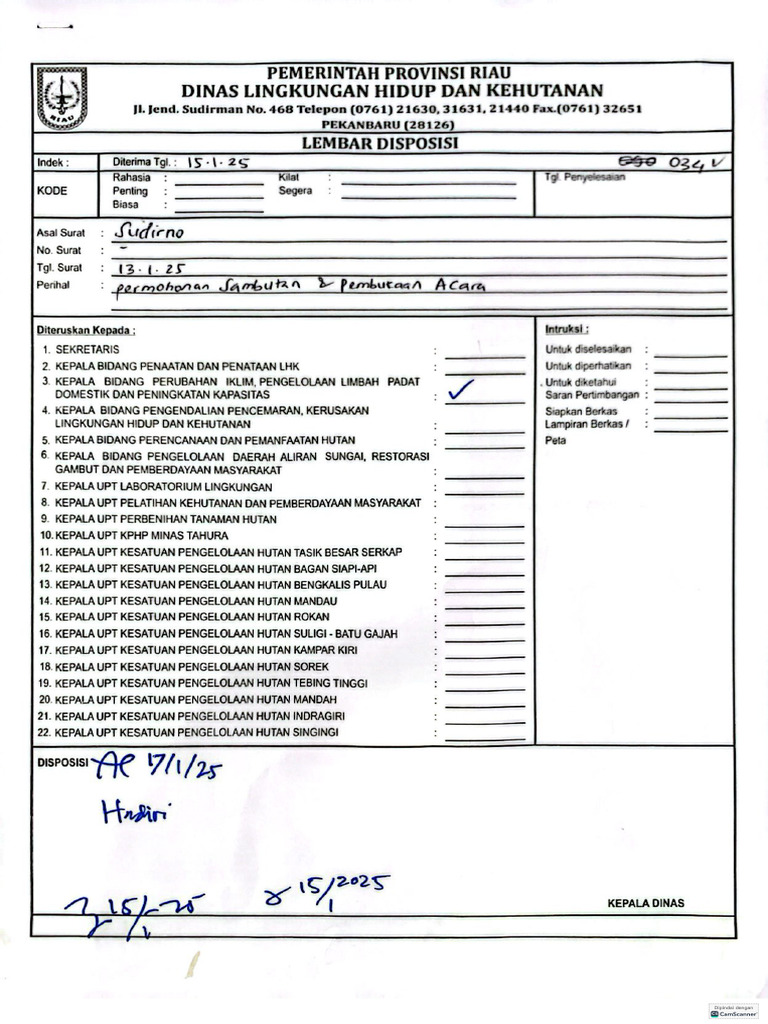 PEMERINTAH PROVINSI RIAU
DINAS LINGKUNGAN HIDUP DAN KEHUTANAN
Jl. Jend. Sudirman No. 468 Telepon (0761) 21630, 31631, 21440 Fax.(0761) 32651
PEKANBARU (28126)
RIAU
LEMBAR DISPOSISI
Indek : Diterima Tgl. : 15.1.25 034
KODE
Rahasia : Kilat :
Penting : Segera :
Biasa :
Tgl. Penyelesaian
Asal Surat : Sudirno
No. Surat : -
Tgl. Surat : 13.1.25
Perihal : permohonan Sambutan & Pembukaan Acara
Diteruskan Kepada :
1. SEKRETARIS :
2. KEPALA BIDANG PENAATAN DAN PENATAAN LHK :
3. KEPALA BIDANG PERUBAHAN IKLIM, PENGELOLAAN LIMBAH PADAT
DOMESTIK DAN PENINGKATAN KAPASITAS : ✓
4. KEPALA BIDANG PENGENDALIAN PENCEMARAN, KERUSAKAN
LINGKUNGAN HIDUP DAN KEHUTANAN :
5. KEPALA BIDANG PERENCANAAN DAN PEMANFAATAN HUTAN :
6. KEPALA BIDANG PENGELOLAAN DAERAH ALIRAN SUNGAI, RESTORASI
GAMBUT DAN PEMBERDAYAAN MASYARAKAT :
7. KEPALA UPT LABORATORIUM LINGKUNGAN :
8. KEPALA UPT PELATIHAN KEHUTANAN DAN PEMBERDAYAAN MASYARAKAT :
9. KEPALA UPT PERBENIHAN TANAMAN HUTAN :
10. KEPALA UPT KPHP MINAS TAHURA :
11. KEPALA UPT KESATUAN PENGELOLAAN HUTAN TASIK BESAR SERKAP :
12. KEPALA UPT KESATUAN PENGELOLAAN HUTAN BAGAN SIAPI-API :
13. KEPALA UPT KESATUAN PENGELOLAAN HUTAN BENGKALIS PULAU :
14. KEPALA UPT KESATUAN PENGELOLAAN HUTAN MANDAU :
15. KEPALA UPT KESATUAN PENGELOLAAN HUTAN ROKAN :
16. KEPALA UPT KESATUAN PENGELOLAAN HUTAN SULIGI - BATU GAJAH :
17. KEPALA UPT KESATUAN PENGELOLAAN HUTAN KAMPAR KIRI :
18. KEPALA UPT KESATUAN PENGELOLAAN HUTAN SOREK :
19. KEPALA UPT KESATUAN PENGELOLAAN HUTAN TEBING TINGGI :
20. KEPALA UPT KESATUAN PENGELOLAAN HUTAN MANDAH :
21. KEPALA UPT KESATUAN PENGELOLAAN HUTAN INDRAGIRI :
22. KEPALA UPT KESATUAN PENGELOLAAN HUTAN SINGINGI :
Intruksi :
Untuk diselesaikan :
Untuk diperhatikan :
Untuk diketahui :
Saran Pertimbangan :
Siapkan Berkas :
Lampiran Berkas / :
Peta
DISPOSISI 17/1/25
Hadiri
15/1-25 15/1 2025
KEPALA DINAS
Dipindai dengan
CamScanner